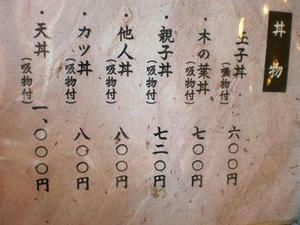 丼物
・玉子丼(吸物付) 六〇〇円
・木の葉丼(吸物付) 七〇〇円
・親子丼(吸物付) 七二〇円
・他人丼(吸物付) 八〇〇円
・カツ丼(吸物付) 八〇〇円
・天丼(吸物付) 一、〇〇〇円